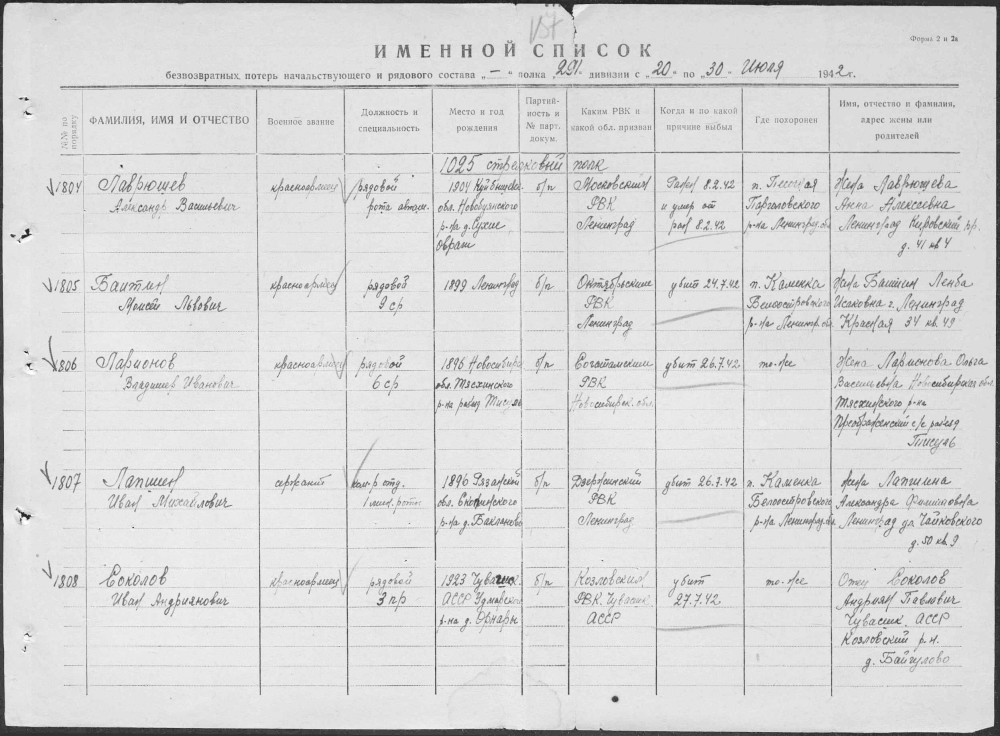 157
Форма 2 и 2а
ИМЕННОЙ СПИСОК
безвозвратных потерь начальствующего и рядового состава „—“ полка 291 дивизии с „20“ по „30“ Июля 1942 г.
№№ по порядку
ФАМИЛИЯ, ИМЯ И ОТЧЕСТВО
Военное звание
Должность и специальность
Место и год рождения
Партийность и № парт. докум.
Каким РВК и какой обл. призван
Когда и по какой причине выбыл
Где похоронен
Имя, отчество и фамилия, адрес жены или родителей
1025 стрелковый полк
1804
Лаврющев
Александр Васильевич
красноармеец
рядовой
рота
1904 Куйбышевск.
обл.
р-на д. Сухие
Овраги
б/п
Московским
РВК
Ленинград
Ранен 8.2.42
и умер от
ран 8.2.42
п. Песочная
Парголовского
р-на Ленинград. обл.
Жена Лаврющева
Анна Алексеевна
Ленинград Кировский пр.
д. 41 кв 4
1805
Баитин
Львович
красноармеец
рядовой
9 ср
1899 Ленинград
б/п
Октябрьским
РВК
Ленинград
убит 24.7.42
п. Каменка
Белоостровского
р-на Ленингр. обл.
Жена
Исаковна г. Ленинград
Красная 34 кв. 49
1806
Ларионов
Владимир Иванович
красноармеец
рядовой
6 ср
1896 Новосибирск.
обл. Тяжинского
р-на разъезд Тисуль
б/п
РВК
Новосибирск. обл.
убит 26.7.42
то-же
Жена Ларионова Ольга
Васильевна Новосибирская обл.
Тяжинского р-на
Преображенский с/с разъезд
Тисуль
1807
Лапшин
Иван Михайлович
сержант
ком-р отд.
1896 Рязанской
обл. Скопинского
р-на д. Бакланово
б/п
Дзержинский
РВК
Ленинград
убит 26.7.42
п. Каменка
Белоостровского
р-на Ленинград. обл.
Жена Лапшина
Александра Фоминовна
Ленинград ул Чайковского
д. 50 кв 9
1808
Соколов
Иван Андриянович
красноармеец
рядовой
3 пр
1923 Чувашск.
АССР
р-на д.
б/п
Козловским
РВК Чувашск.
АССР
убит
27.7.42
то-же
Отец Соколов
Андриян Павлович
Чувашск. АССР
Козловский р-н.
д. Байгулово